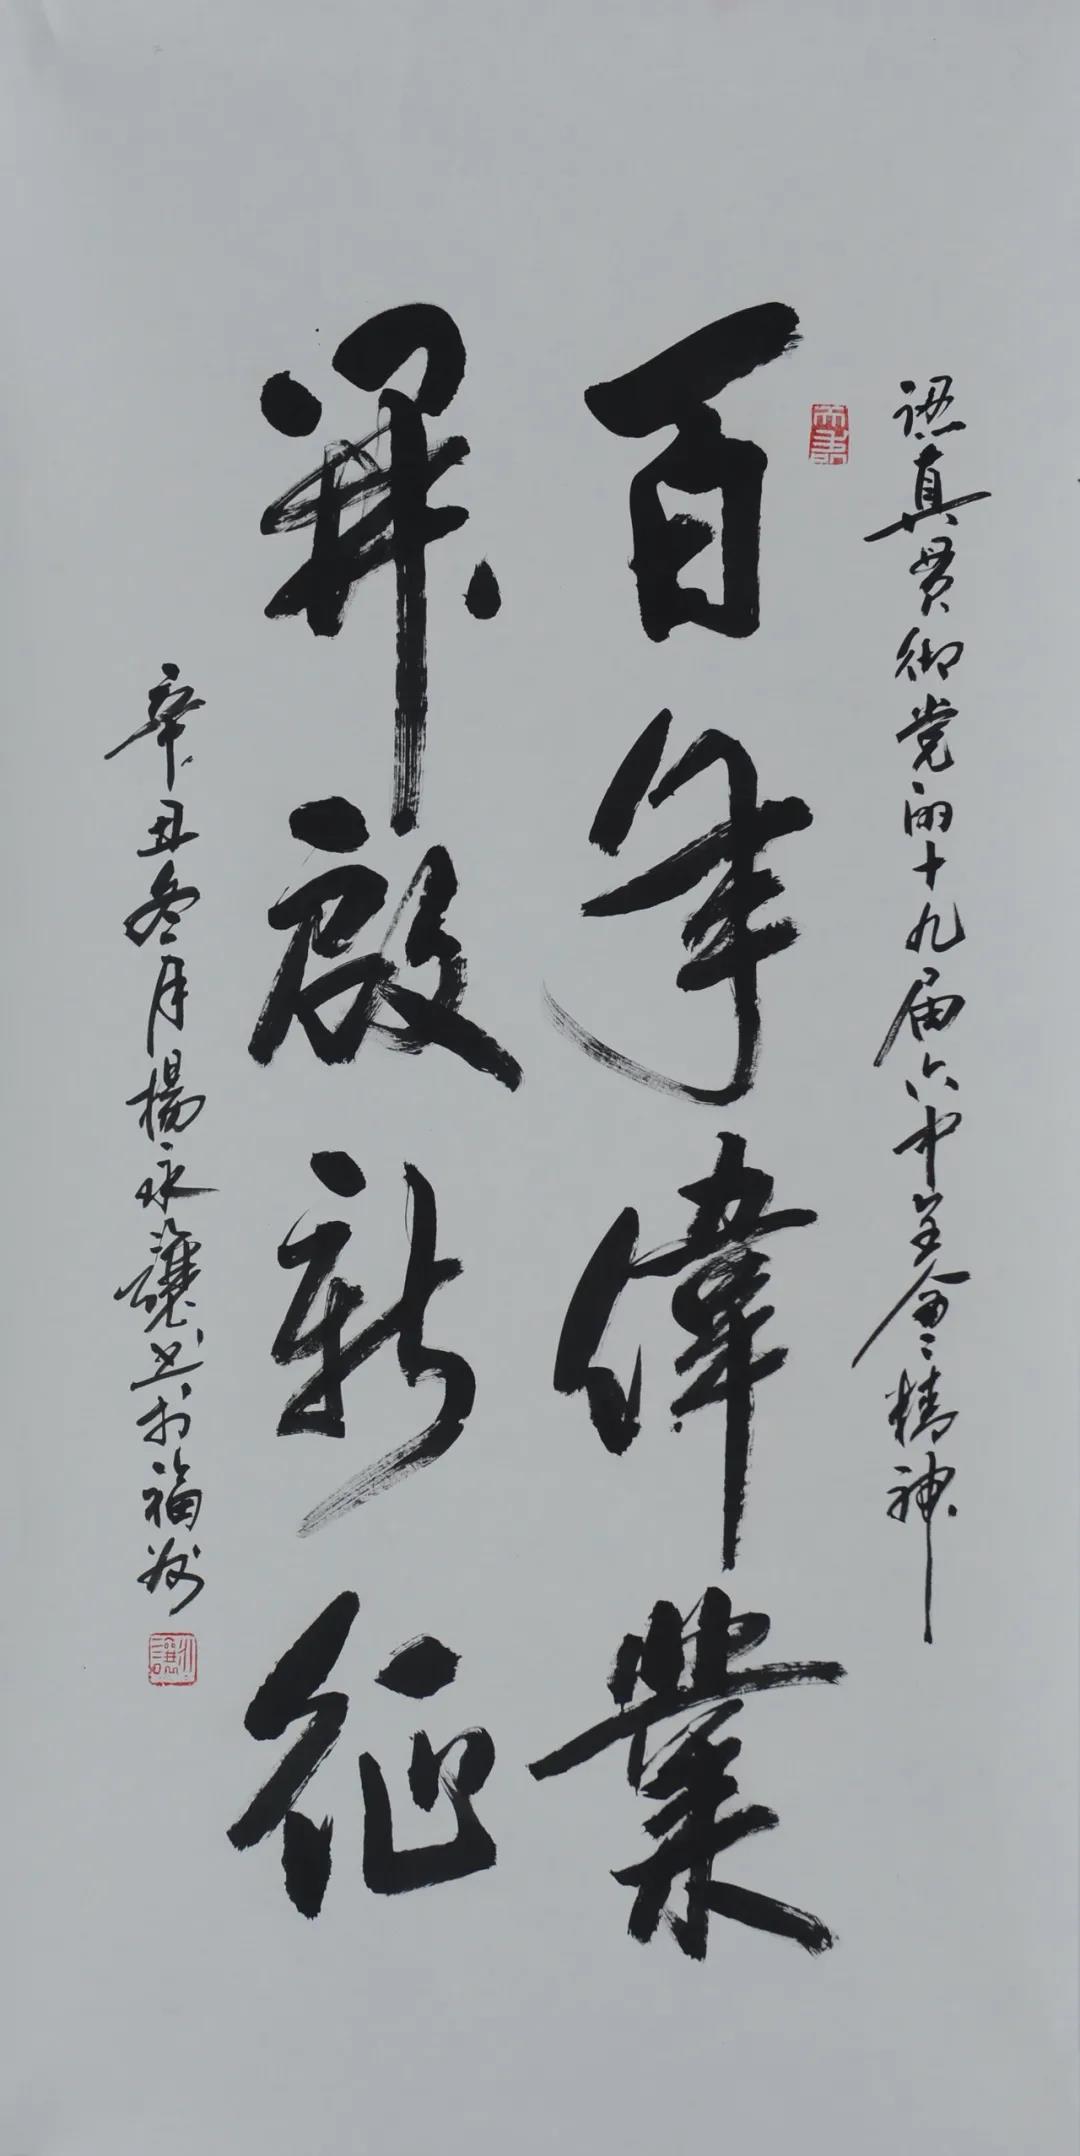 認真贯彻党的十九届六中全会精神
百年偉業
開啟新征
辛丑冬月楊永讓书於福州